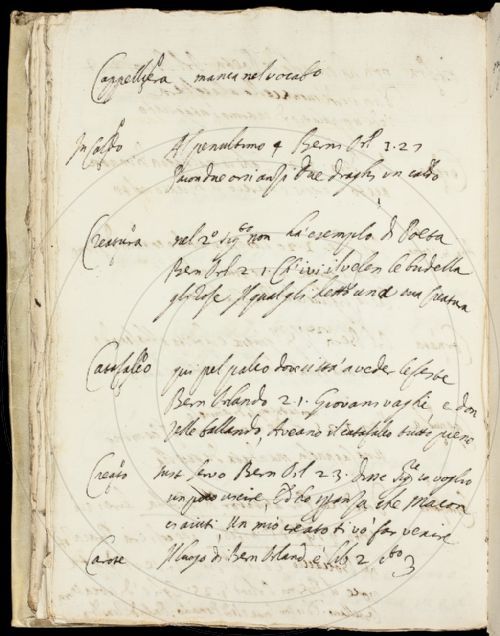 Cappelliera manca nel vocabo
In caldo Al penultimo § Bern Orl 1. 27
due draghi un caldo
Creatura nel 2º sigto non ha esempio di Poeta
Bern Orl 2. 1. Ch'ivi il velen le budella
gli rose, Il qual gli dette una sua creatura
Catafalco qui pel palco dove si sta a veder le feste
Bern Orlando 2. 1. Giovani vaghi e don
zelle ballando, Aveano il catafalco tutto pieno
Creato sust servo Bern Orl 2 3. dove io voglio
un poco uscire, Ed ho speranza che Macon
ci aiuti Un mio creato ti vo' far venire
Carote Il luogo di Bern Orland è lib 2 cto 3